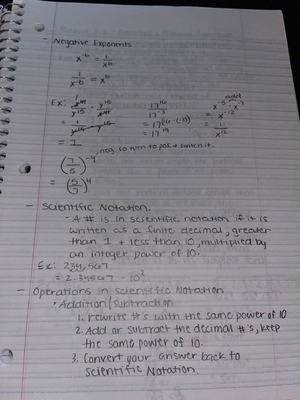 - Negative Exponents
x^-b = 1/x^b
1/x^-b = x^b
Ex:
= 1
17^16/17^-3
= 17^(16-(-3))
= 17^19
add
x^-5 · x^-7
= x^-12
= 1/x^12
neg. so turn to pos. + switch it.
(7/5)^-4
= (5/7)^4
- Scientific Notation.
- A # is in scientific notation if it is
written as a finite decimal, greater
than 1 + less than 10, multiplied by
an integer power of 10.
Ex: 234,567
= 2.34567 · 10
- Operations in Scientific Notation
• Addition/Subtraction
1. rewrite #'s with the same power of 10
2. Add or subtract the decimal #'s, keep
the same power of 10.
3. Convert your answer back to
Scientific Notation.